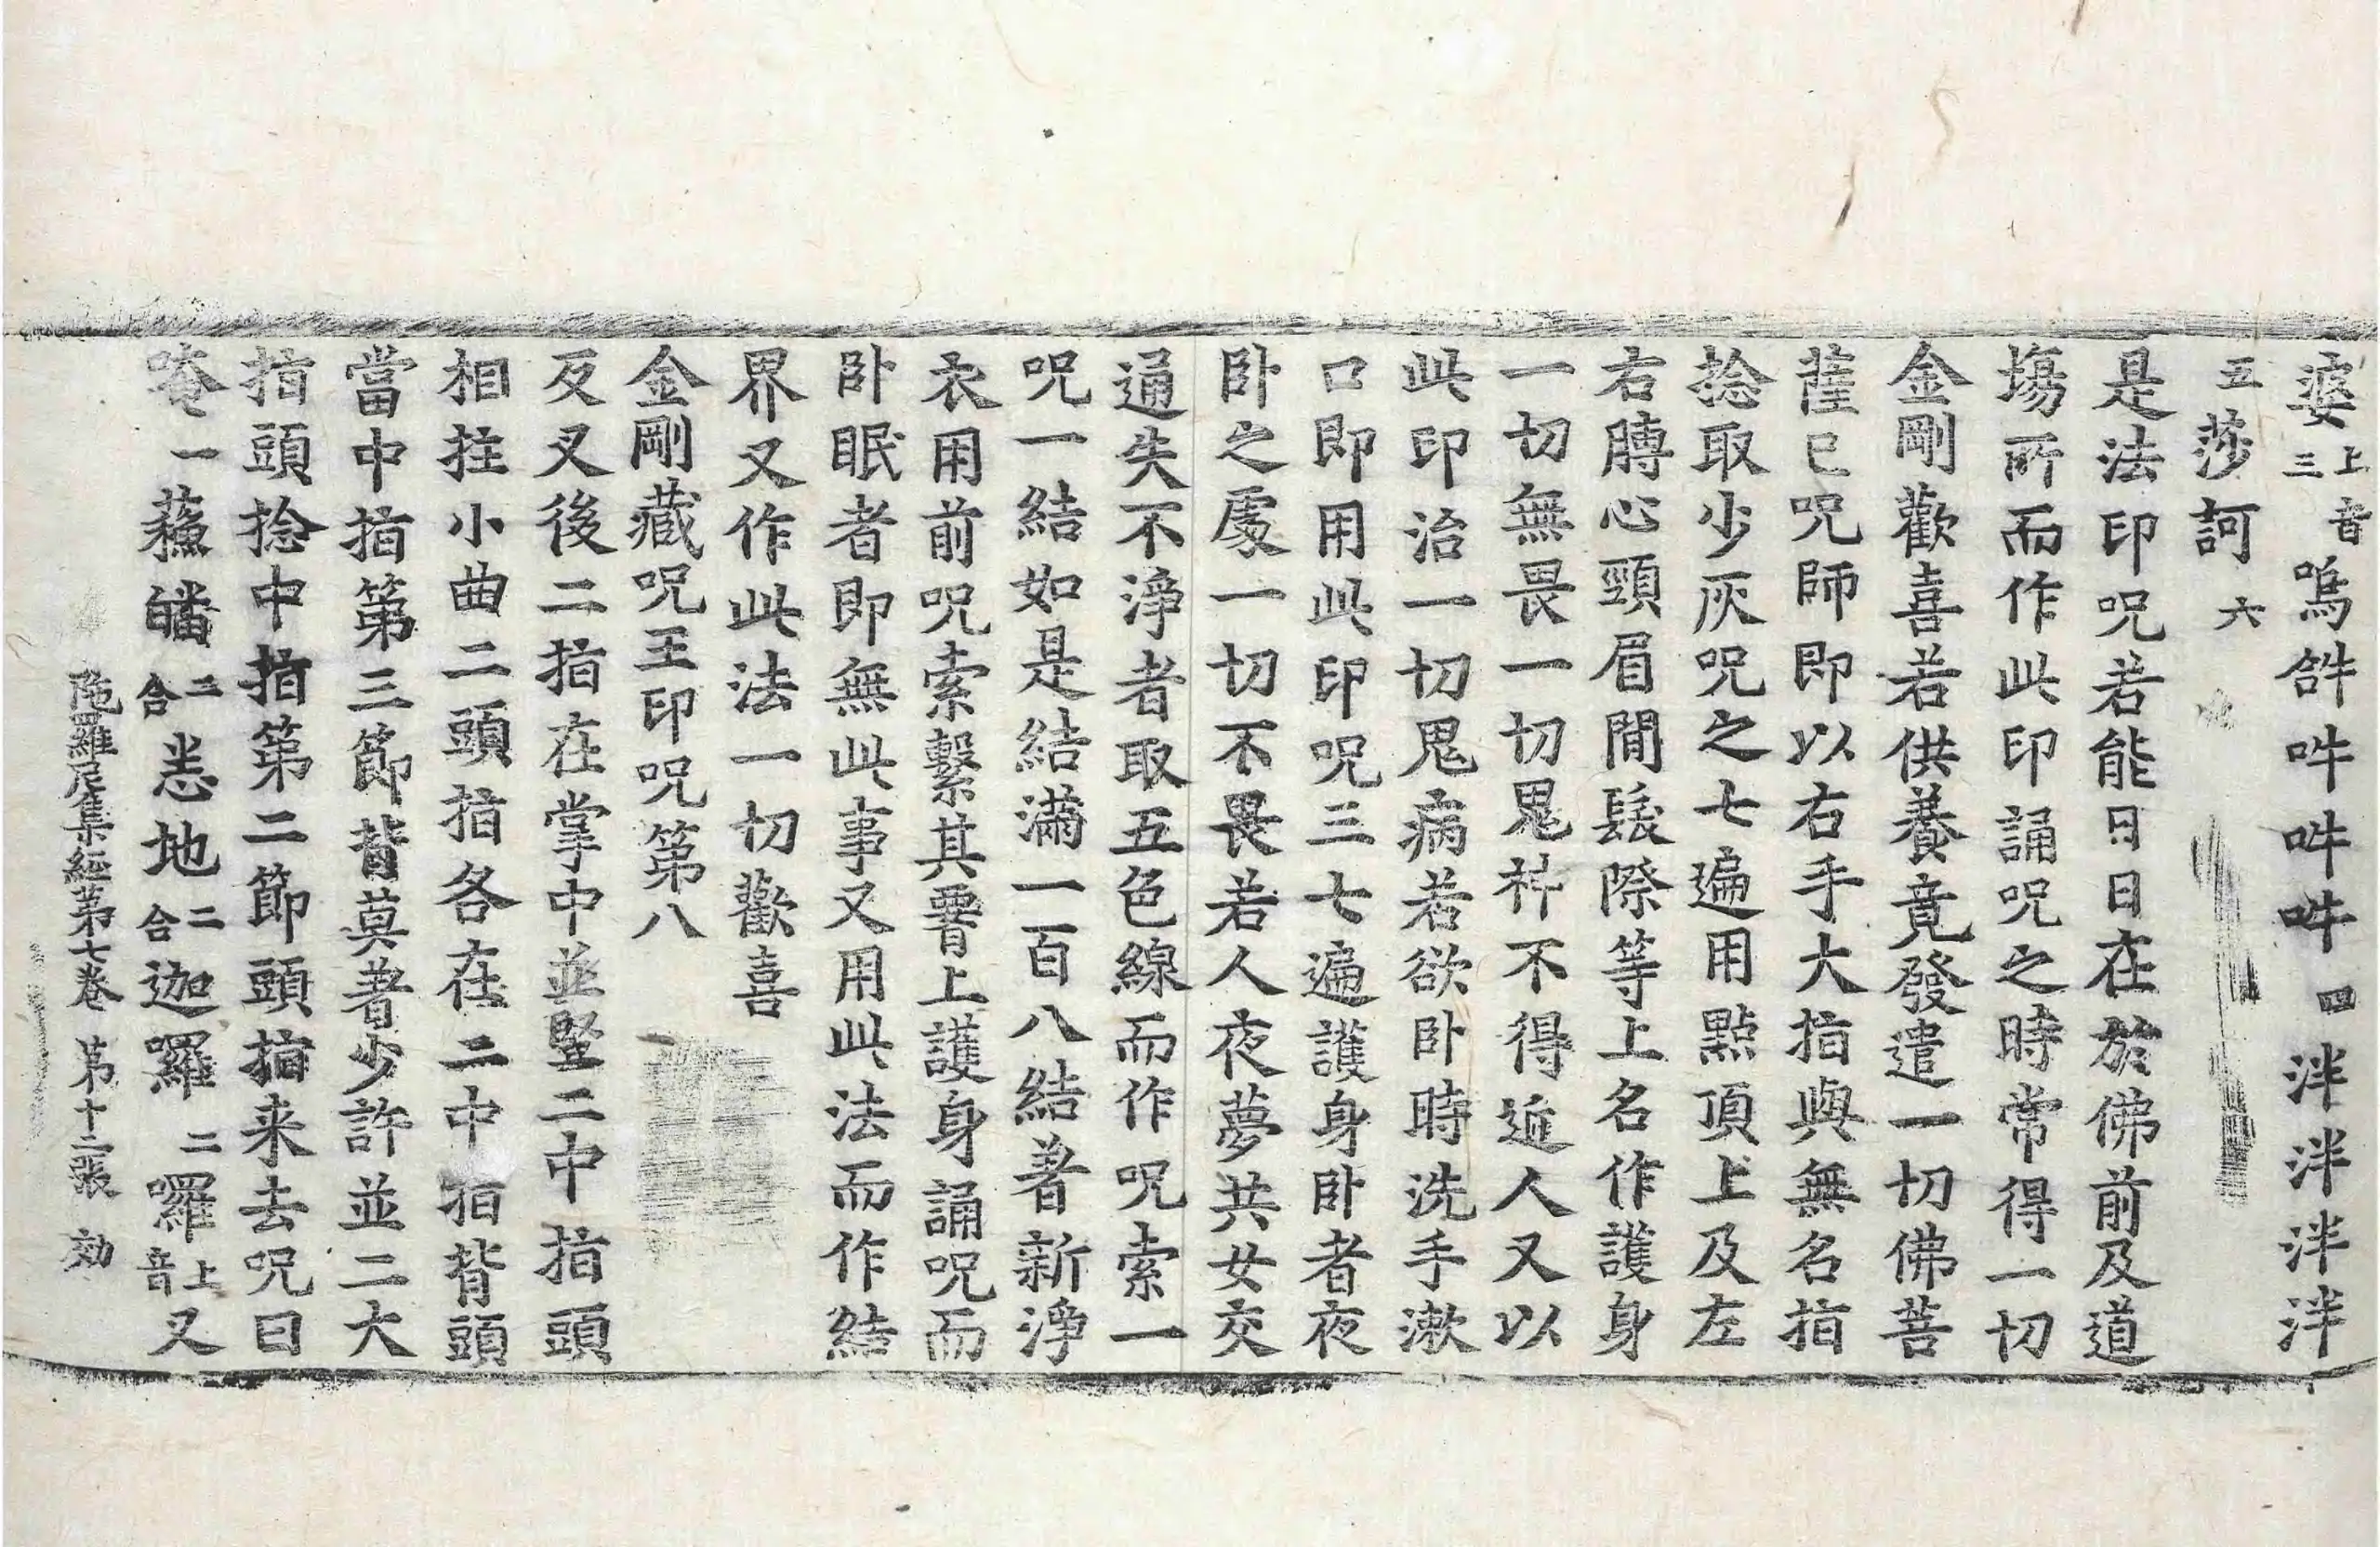 婆上音三嗚𤙖吽吽吽四泮泮泮泮
五莎訶六
是法印呪若能日日在於佛前及道
場所而作此印誦呪之時常得一切
金剛歡喜若供養竟發遣一切佛菩
薩已呪師即以右手大指與無名指
捻取少灰呪之七遍用點頂上及左
右膊心頸眉閒髮際等上名作護身
一切無畏一切鬼神不得近人又以
此印治一切鬼病若欲卧時洗手漱
口即用此印呪三七遍護身卧者夜
卧之處一切不畏若人夜夢共女交
通失不淨者取五色線而作呪索一
呪一結如是結滿一百八結著新淨
衣用前呪索繫其署上護身誦呪而
卧眠者即無此事又用此法而作結
界又作此法一切歡喜
金剛藏呪王印呪第八
反叉後二指在掌中並竪二中指頭
相拄小曲二頭指各在二中指背頭
當中指第三節背莫著少許並二大
指頭捻中指第二節頭指来去呪曰
唵一蘓皤二合悉地二合迦囉二囉上音又
陁羅尼集經第七卷 第十二張 効